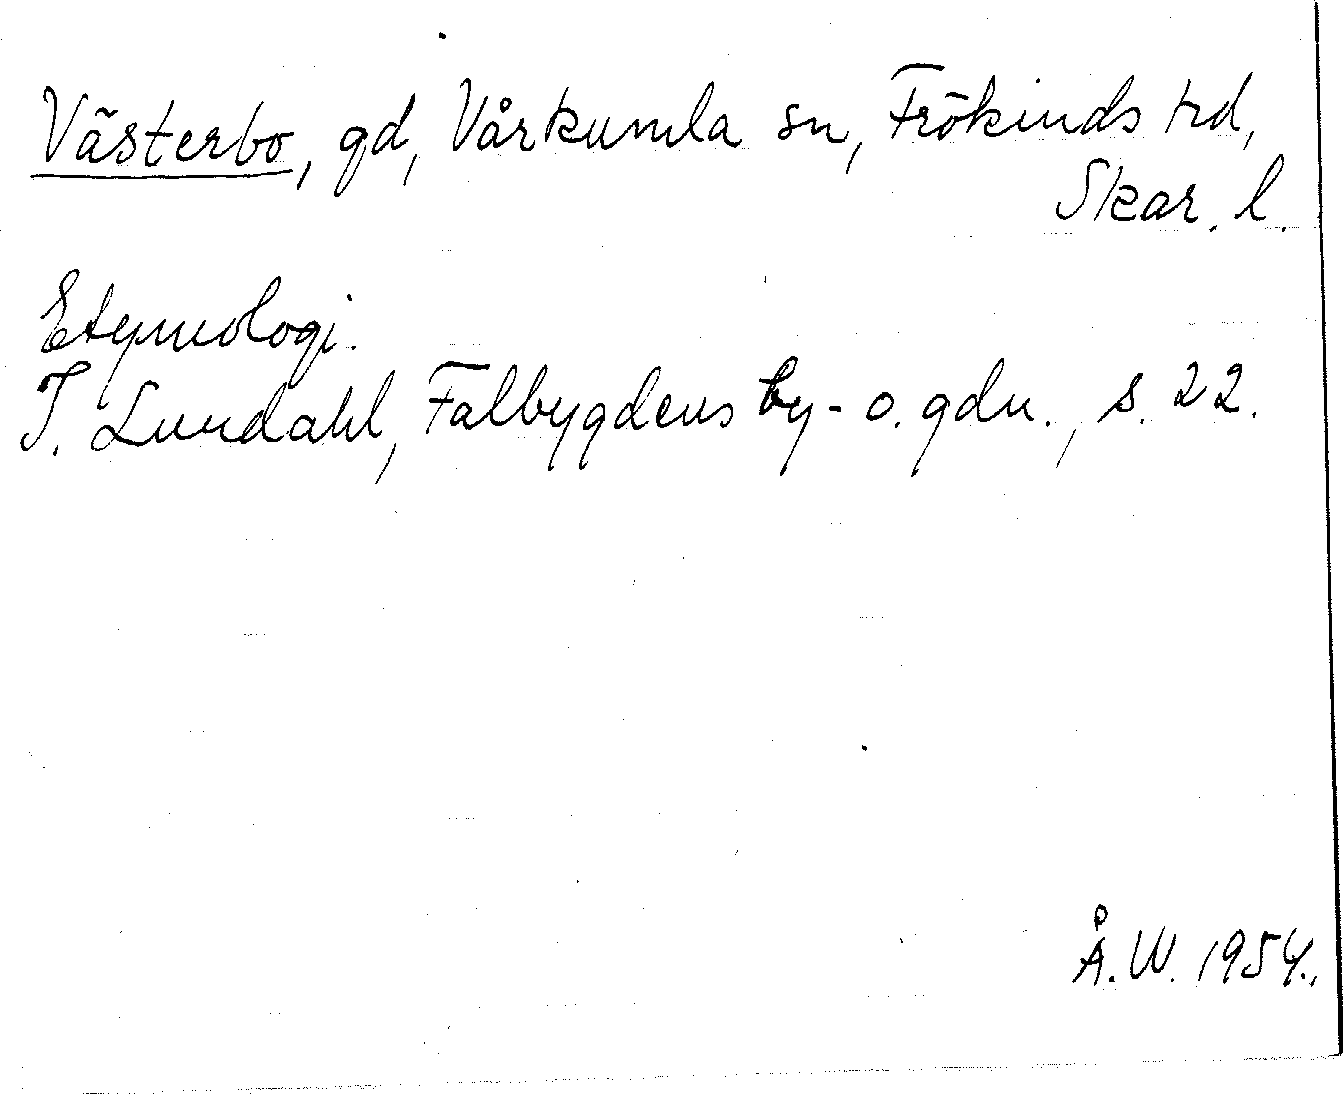 Västerbo, gd, Vårkumla sn, Frökinds hd,
Skar. l.
Etymologi.
I. Lundahl, Falbygdens by- o. gdn., s. 22.
Å.W. 1954.